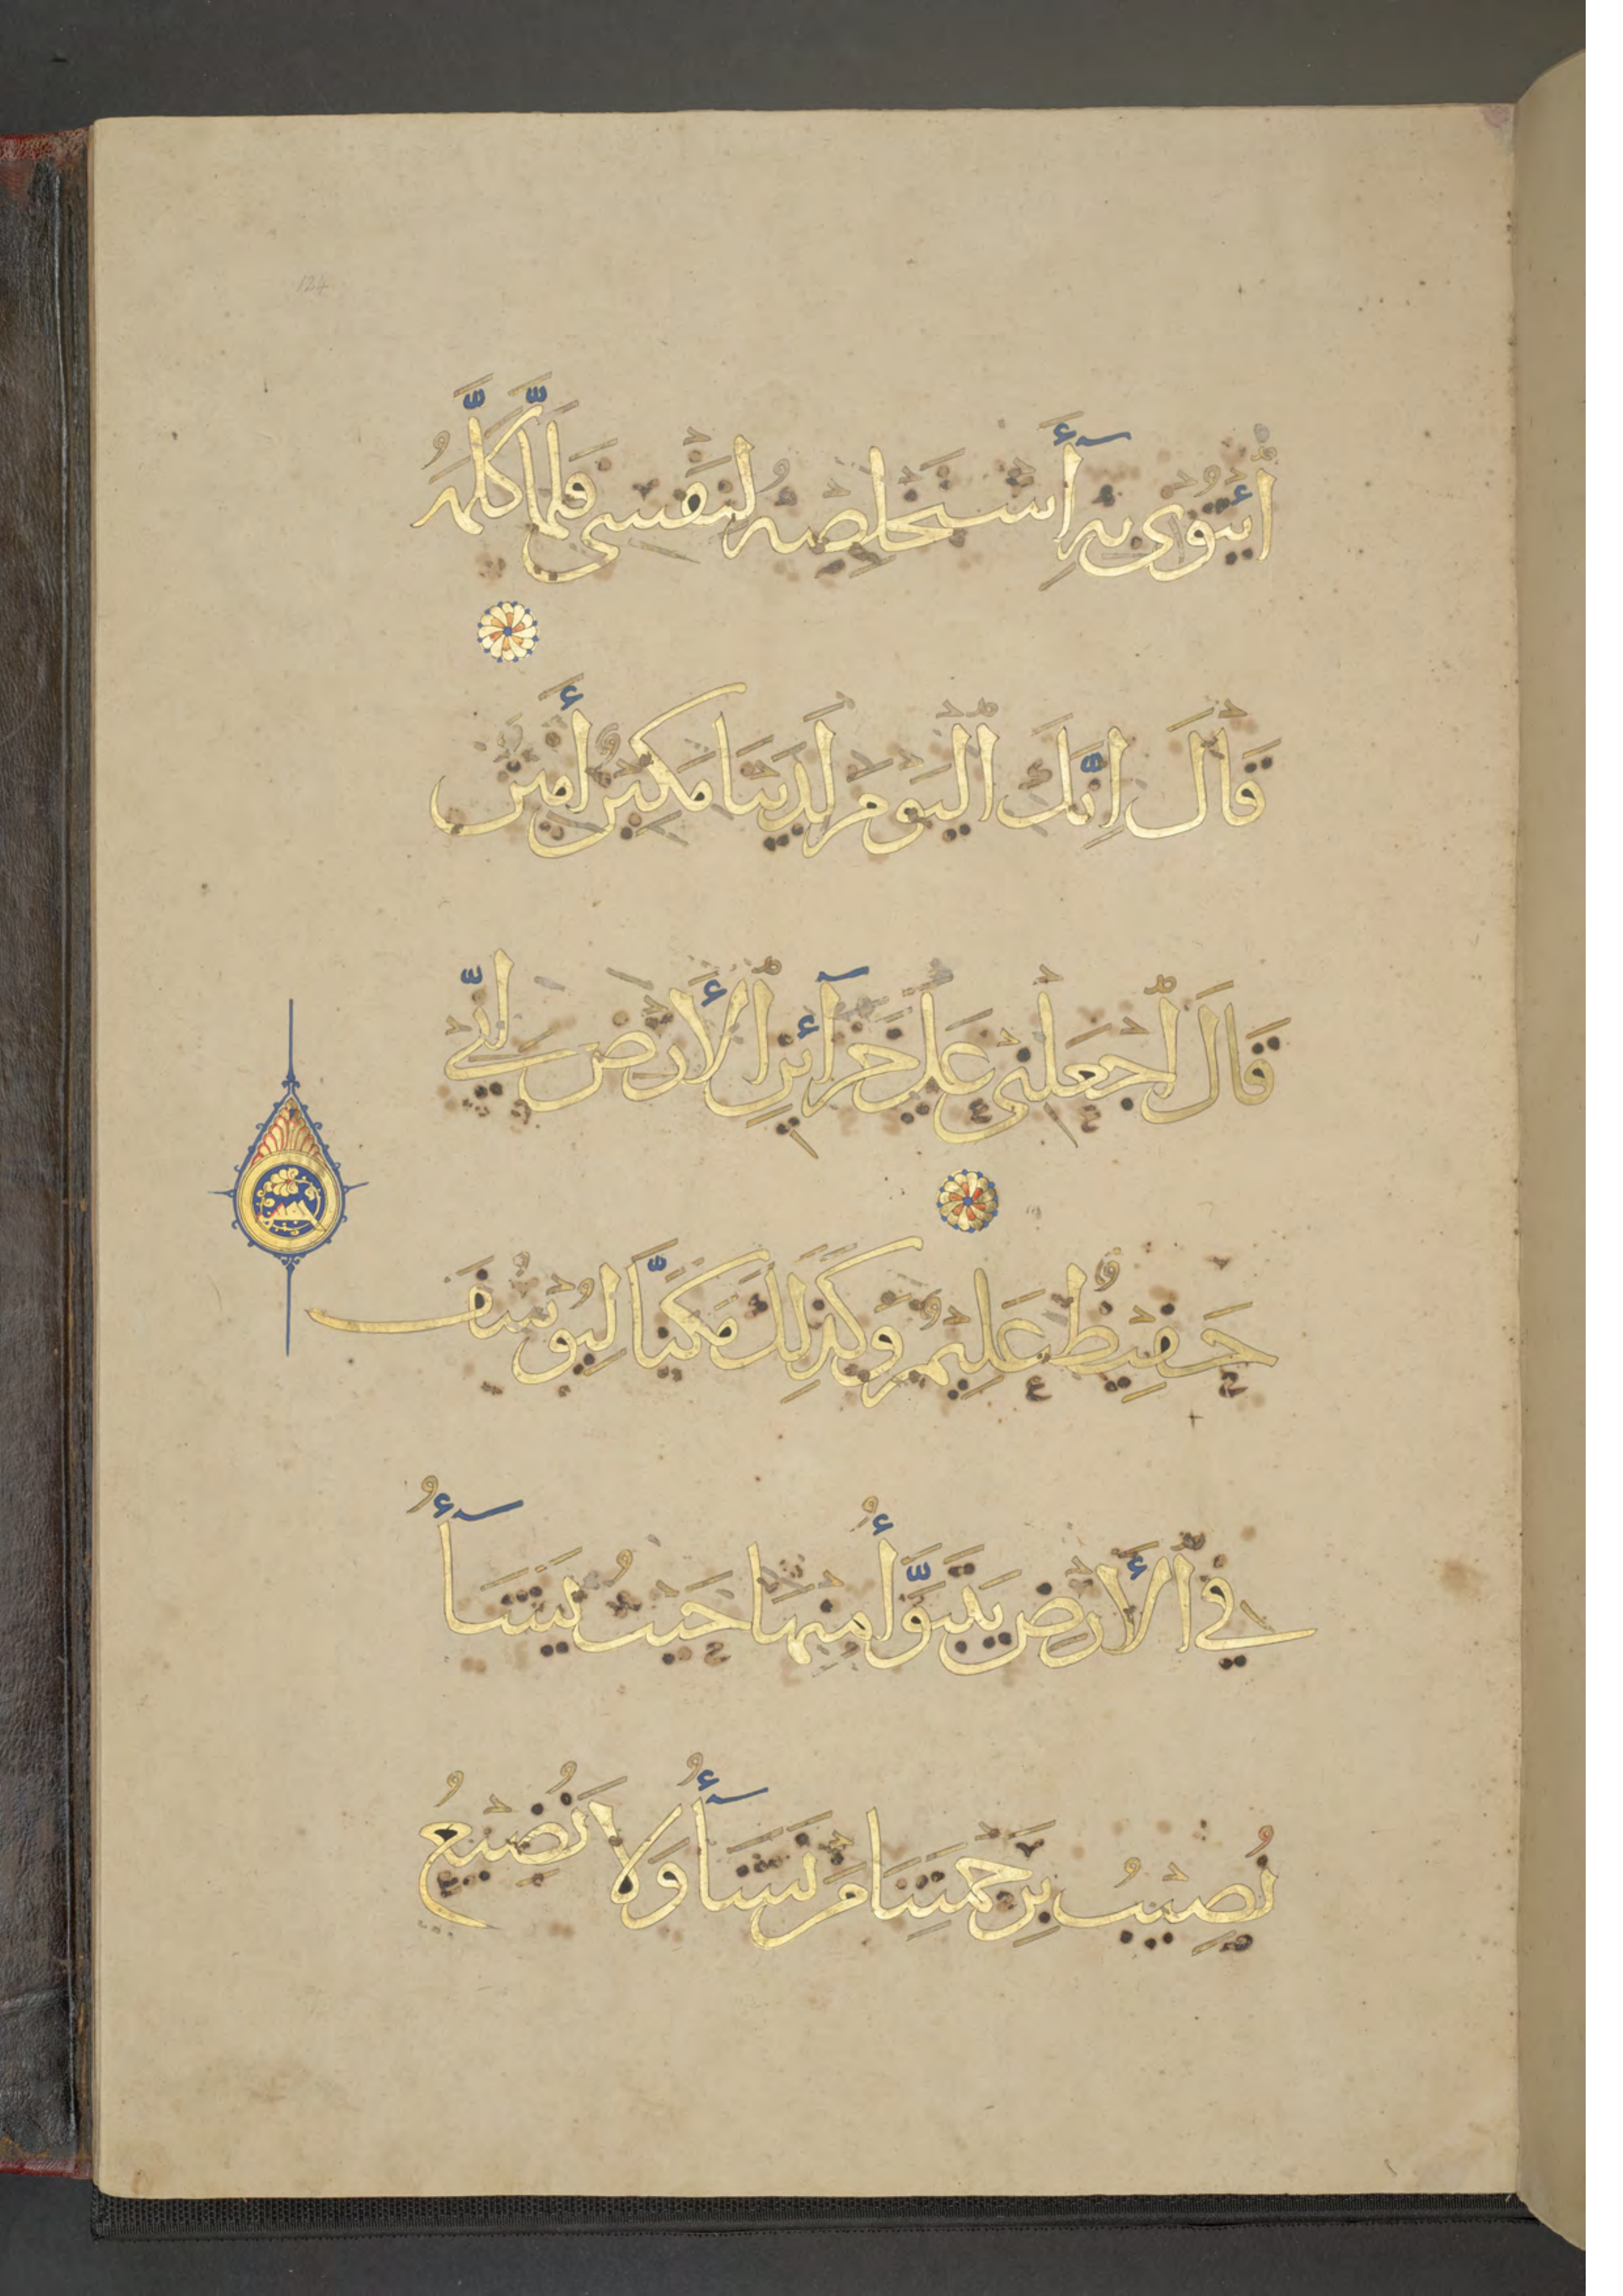 ٱئْتُونِى بِهِ أَسْتَخْلِصْهُ لِنَفْسِى فَلَمَّا كَلَّمَهُ
قَالَ إِنَّكَ ٱلْيَوْمَ لَدَيْنَا مَكِينٌ أَمِينٌ
قَالَ ٱجْعَلْنِى عَلَى خَزَآئِنِ ٱلْأَرْضِ إِنِّى
حَفِيظٌ عَلِيمٌ وَكَذَلِكَ مَكَّنَّا لِيُوسُفَ
فِي ٱلْأَرْضِ يَتَبَوَّأُ مِنْهَا حَيْثُ يَشَآءُ
نُصِيبُ بِرَحْمَتِنَا مَن نَشَآءُ وَلَا نُضِيعُ
124